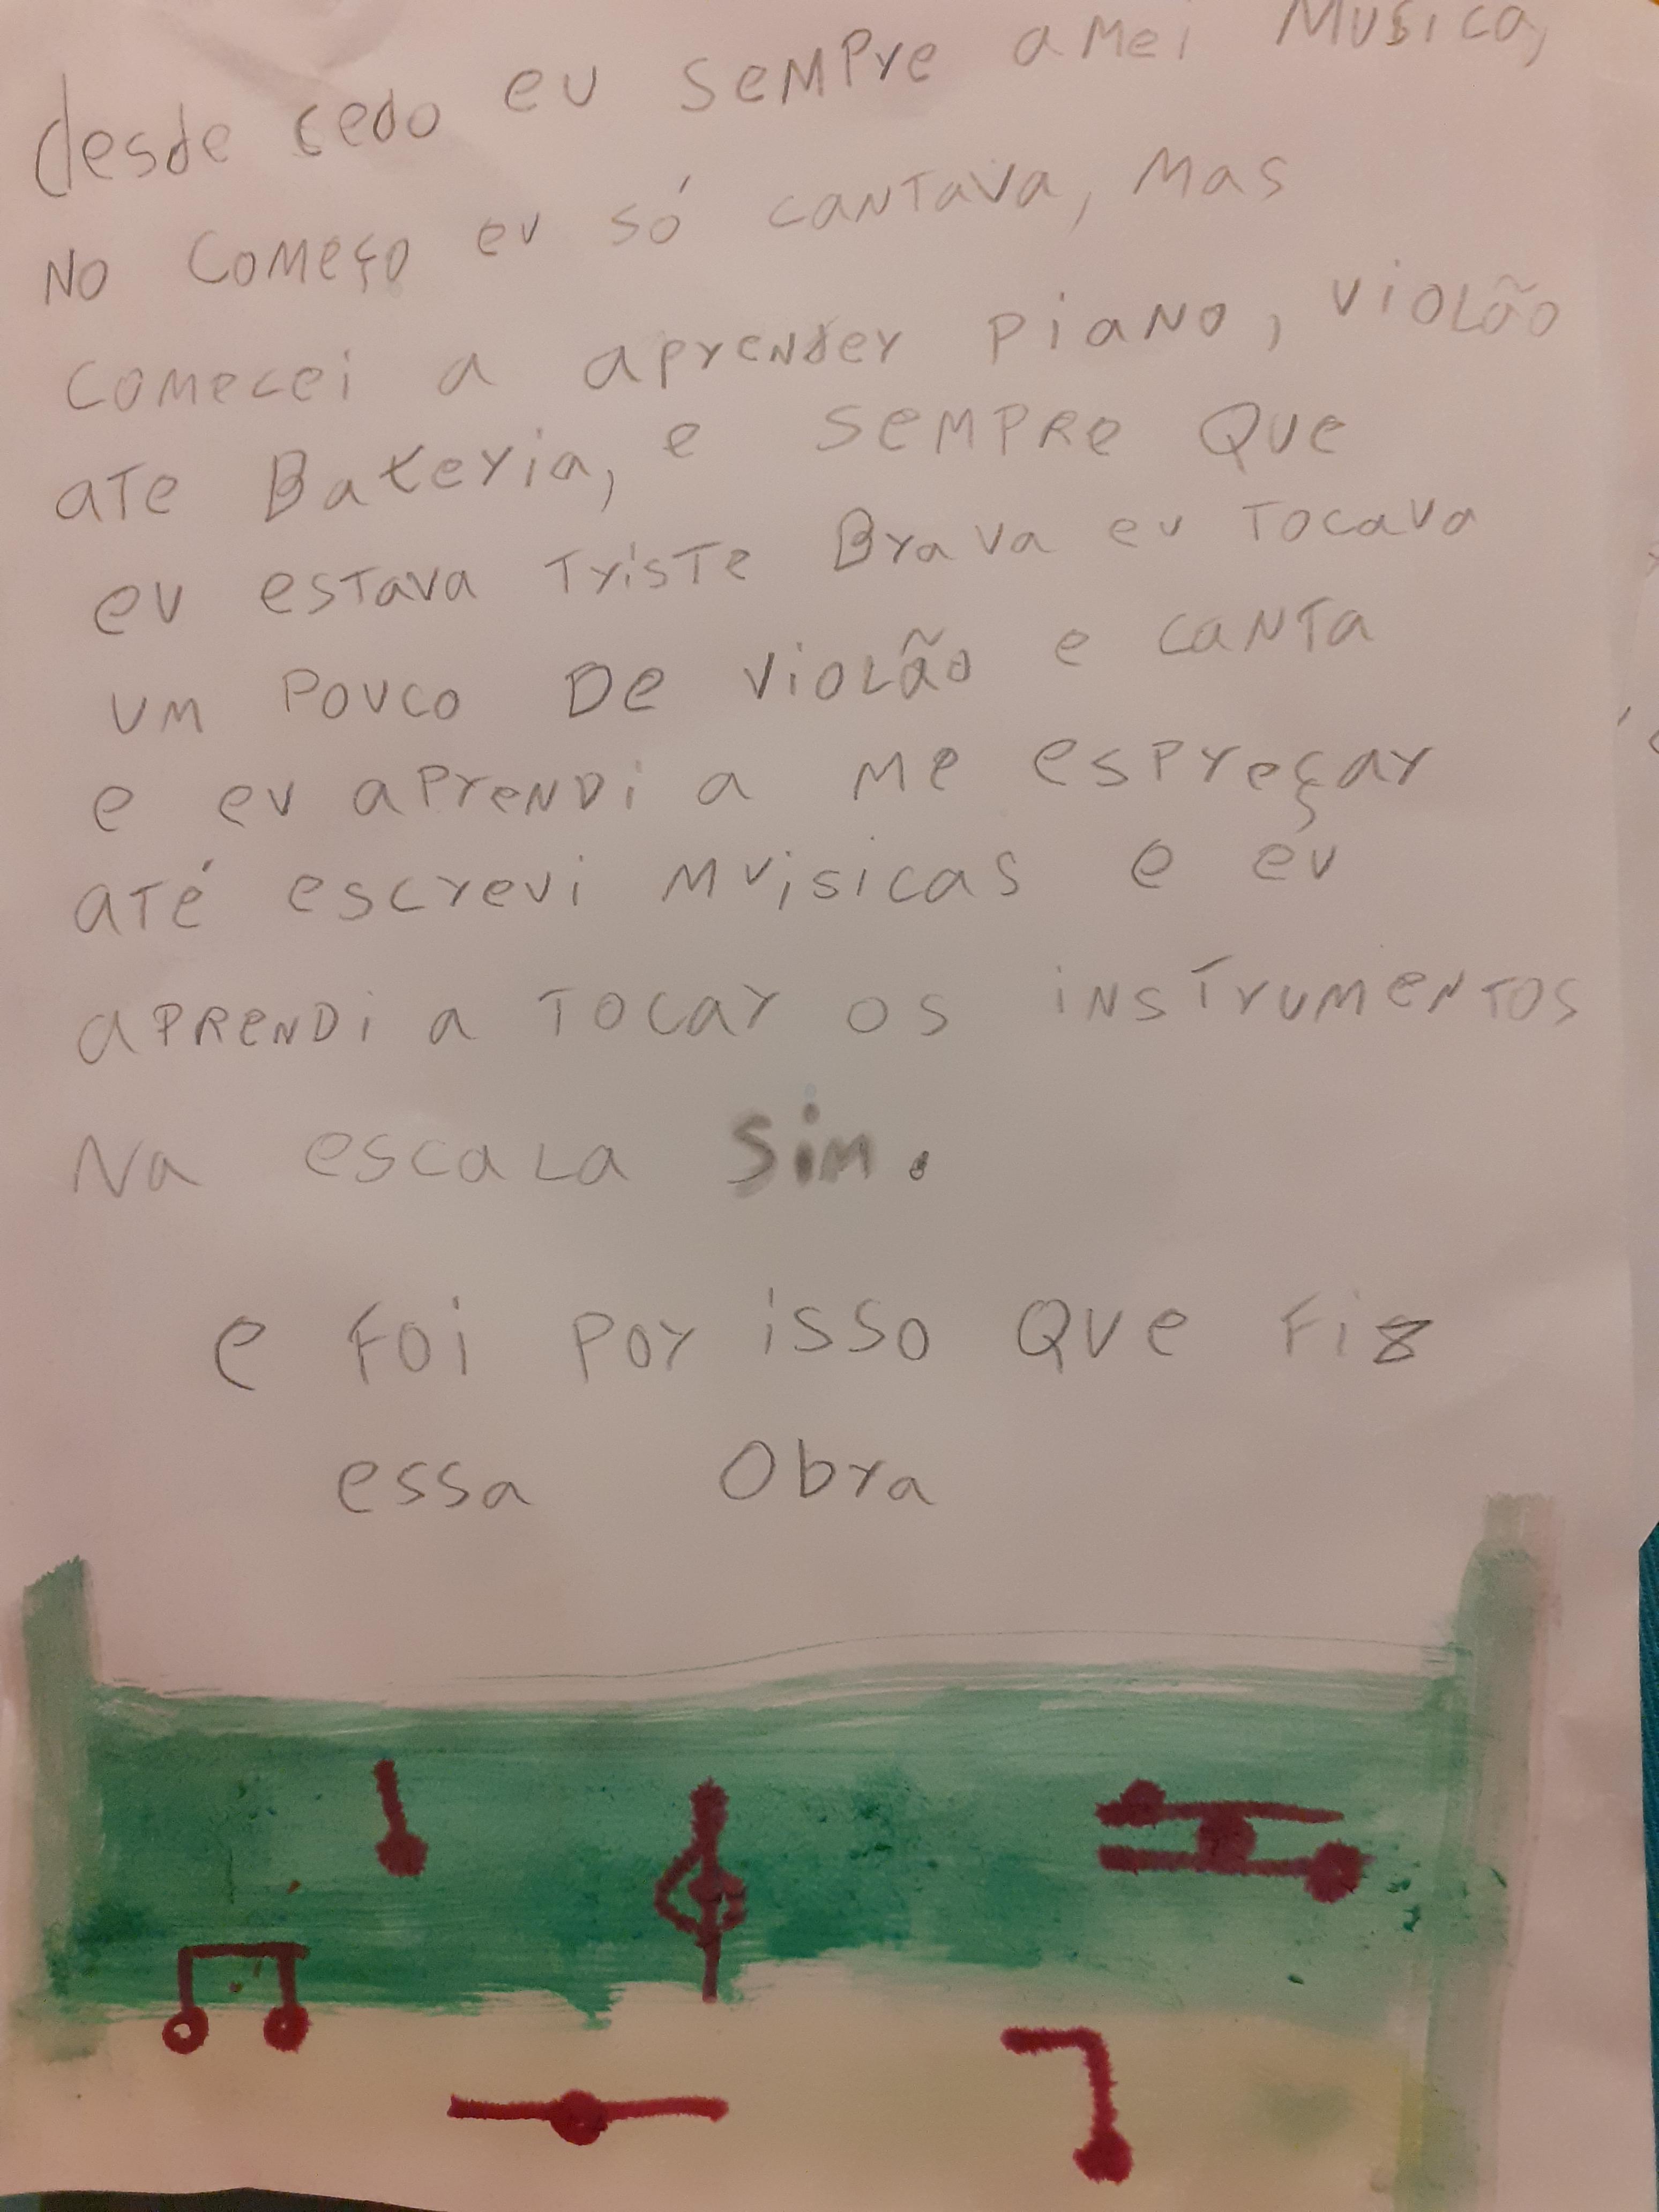 desde cedo eu sempre amei musica,
no começo eu só cantava, mas
comecei a aprender piano, violão
ate Bateria, e sempre que
eu estava triste Brava eu tocava
um pouco de violão e canta
e eu aprendi a me espreçar
até escrevi muisicas e eu
aprendi a tocar os instrumentos
na escala sim.
e foi por isso que fiz
essa obra